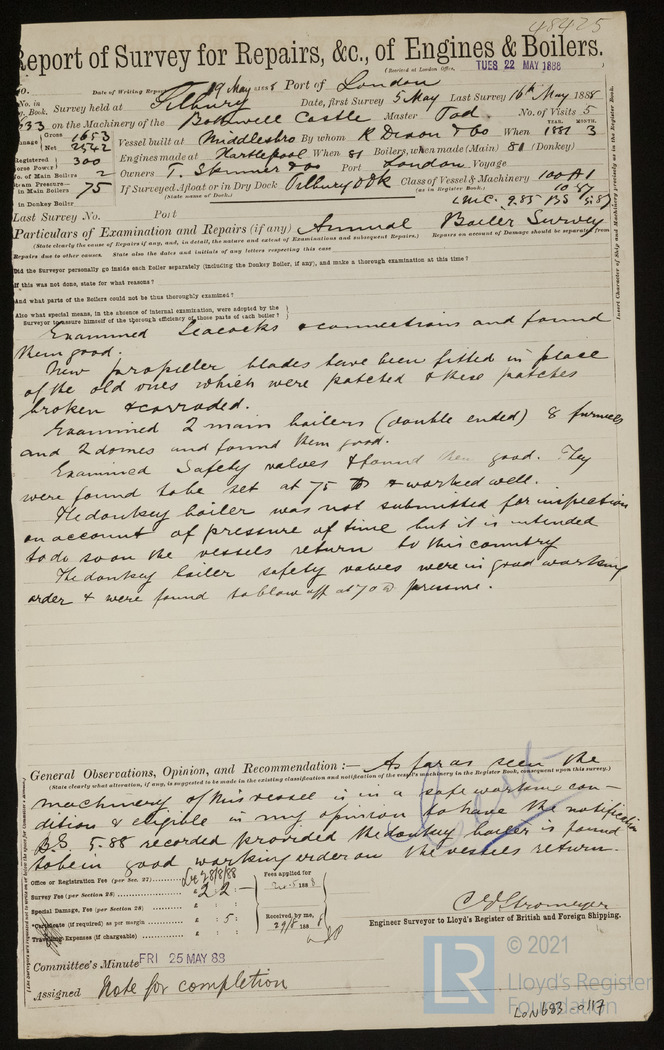 48425
Report of Survey for Repairs, &c., of Engines & Boilers.
(Received at London Office,
TUES 22 MAY 1888
No.
Date of Writing Report 19 May 1888 Port of London
No. in
Reg. Book.
Survey held at Tilbury Date, first Survey 5 May Last Survey 16th May 1888
633 on the Machinery of the Bothwell Castle Master Tod No. of Visits 5
YEAR. MONTH.
Tonnage
Gross 1653
Net 2542
Vessel built at Middlesbro By whom R Dixon & Co When 1881 3
Registered
Horse Power 300
Engines made at Hartlepool When 81 Boilers, when made (Main) 81 (Donkey)
No. of Main Boilers 2
Owners T. Skinner & Co Port London Voyage
Steam Pressure—
in Main Boilers 75
If Surveyed Afloat or in Dry Dock Tilbury Dk Class of Vessel & Machinery 100 A1
(State name of Dock.)
(as in Register Book.)
10.87
in Donkey Boiler
LMC. 9.85 BS 5.87
Last Survey No. Port
Particulars of Examination and Repairs (if any) Annual Boiler Survey
(State clearly the cause of Repairs if any, and, in detail, the nature and extent of Examinations and subsequent Repairs.) Repairs on account of Damage should be separated from
Repairs due to other causes. State also the dates and initials of any letters respecting this case
Did the Surveyor personally go inside each Boiler separately (including the Donkey Boiler, if any), and make a thorough examination at this time?
If this was not done, state for what reasons?
And what parts of the Boilers could not be thoroughly examined?
Also what special means, in the absence of internal examination, were adopted by the
Surveyor to assure himself of the thorough efficiency of those parts of each boiler?
Insert Character of Ship and Machinery precisely as in the Register Book.
Examined Seacocks & connections and found
them good.
New propeller blades have been fitted in place
of the old ones which were patched & these patches
broken & corroded.
Examined 2 main boilers (double ended) 8 furnaces
and 2 domes and found them good.
Examined Safety valves & found them good. They
were found to be set at 75 lb & worked well.
The donkey boiler was not submitted for inspection
on account of pressure of time but it is intended
to do so on the vessels return to this country
The donkey boiler safety valves were in good working
order & were found to blow off at 70 lb pressure.
General Observations, Opinion, and Recommendation :— As far as seen the
(State clearly what alteration, if any, is suggested to be made in the existing classification and notification of the vessel's machinery in the Register Book, consequent upon this survey.)
machinery of this vessel is in a safe working con-
dition & eligible in my opinion to have the notification
B.S. 5.88 recorded provided the donkey boiler is found
to be in good working order on the vessels return.
Office or Registration Fee (per Sec. 27)
28/8/88
Fees applied for
Survey Fee (per Section 28) £ 2 : 2 : —
188
Special Damage, Fee (per Section 28) £ : :
*Certificate (if required) as per margin £ : 5 :
Received by me,
29/8 1888
Travelling Expenses (if chargeable) £ : :
C E Stromeyer
Engineer Surveyor to Lloyd's Register of British and Foreign Shipping.
Committee's Minute FRI 25 MAY 88
Assigned Note for completion
© 2021
LR
Lloyd's Register
Foundation
LON683-0117